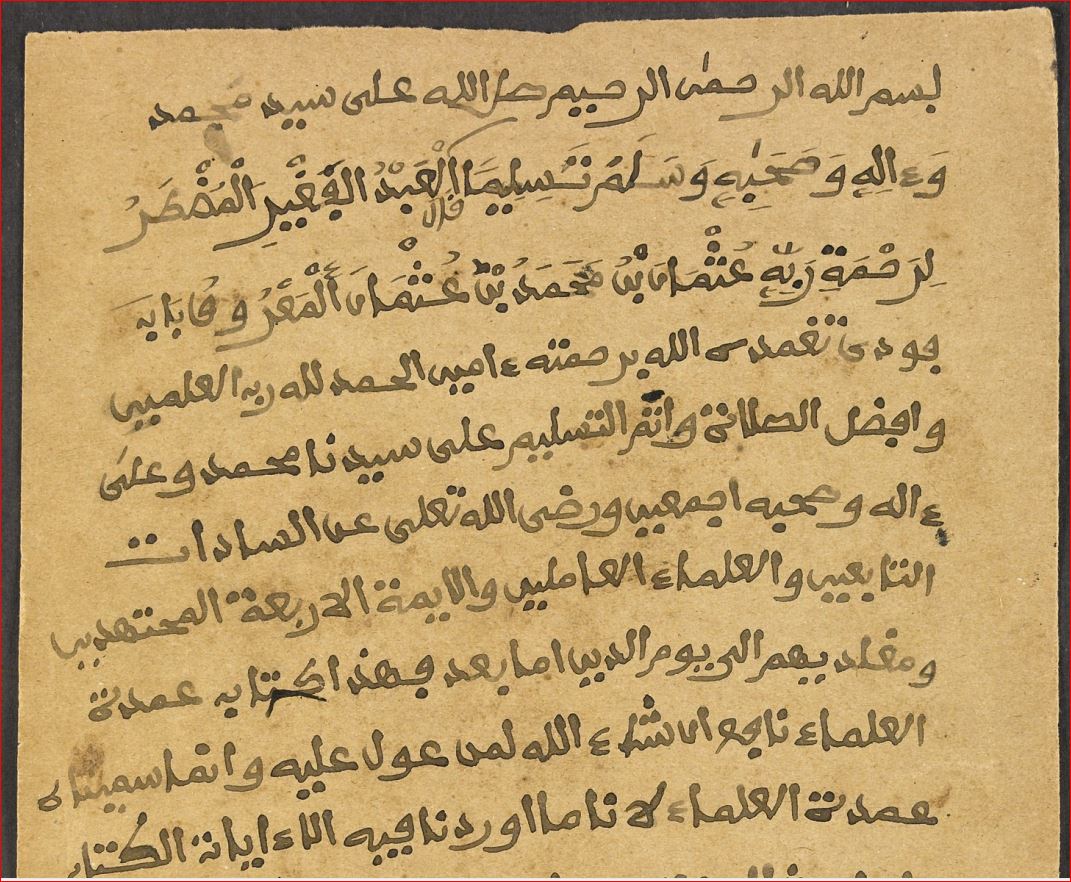 بسم الله الرحمن الرحيم صلى الله على سيد محمد
وَءالِهِ وَصَحْبِهِ وَسَلَّمَ تَسْلِيمًا قال الْعَبْدُ الْفَقِيرِ الْمُضْطَرُ
لِرَحْمَةِ رَبِّهِ عُثْمَان بْنُ مُحَمَّدُ بْنُ عُثْمَان الْمَعْرُوف بابن
فودي تغمده الله برحمته ءامين الحمد لله رب العلمين
وافضل الصلاة واتم التسليم على سيدنا محمد وعلى
ءاله وصحبه اجمعين ورضى الله تعلى عن السادات
التابعين والعلماء العاملين والايمة الاربعة المجتهدين
ومقلديهم الى يوم الدين اما بعد فهذا كتاب عمدة
العلماء نافع ان شاء الله لمن عول عليه وانما سميناه
عمدة العلماء لانا ما اوردنا فيه الا ءايات الكتاب